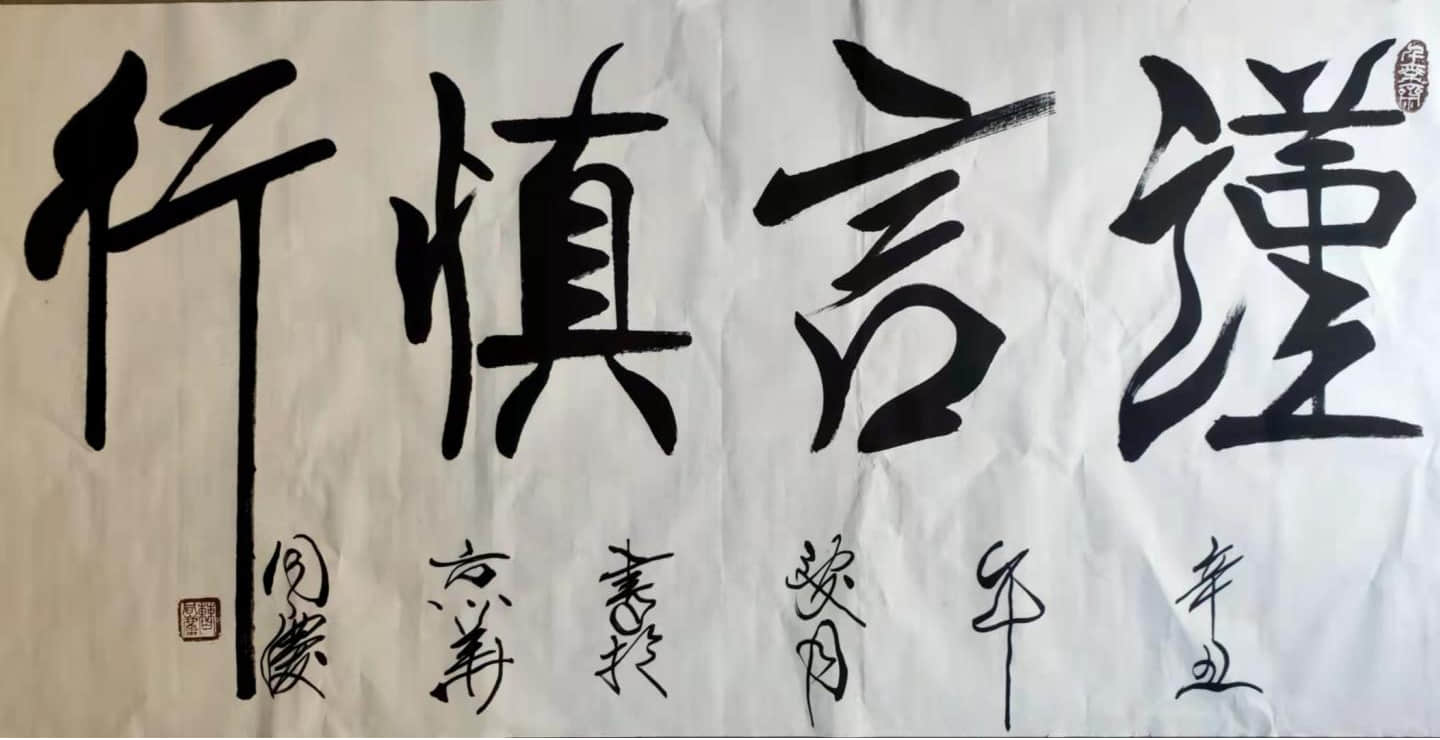 谨言慎行
辛丑
年
月
書於
京華
同慶